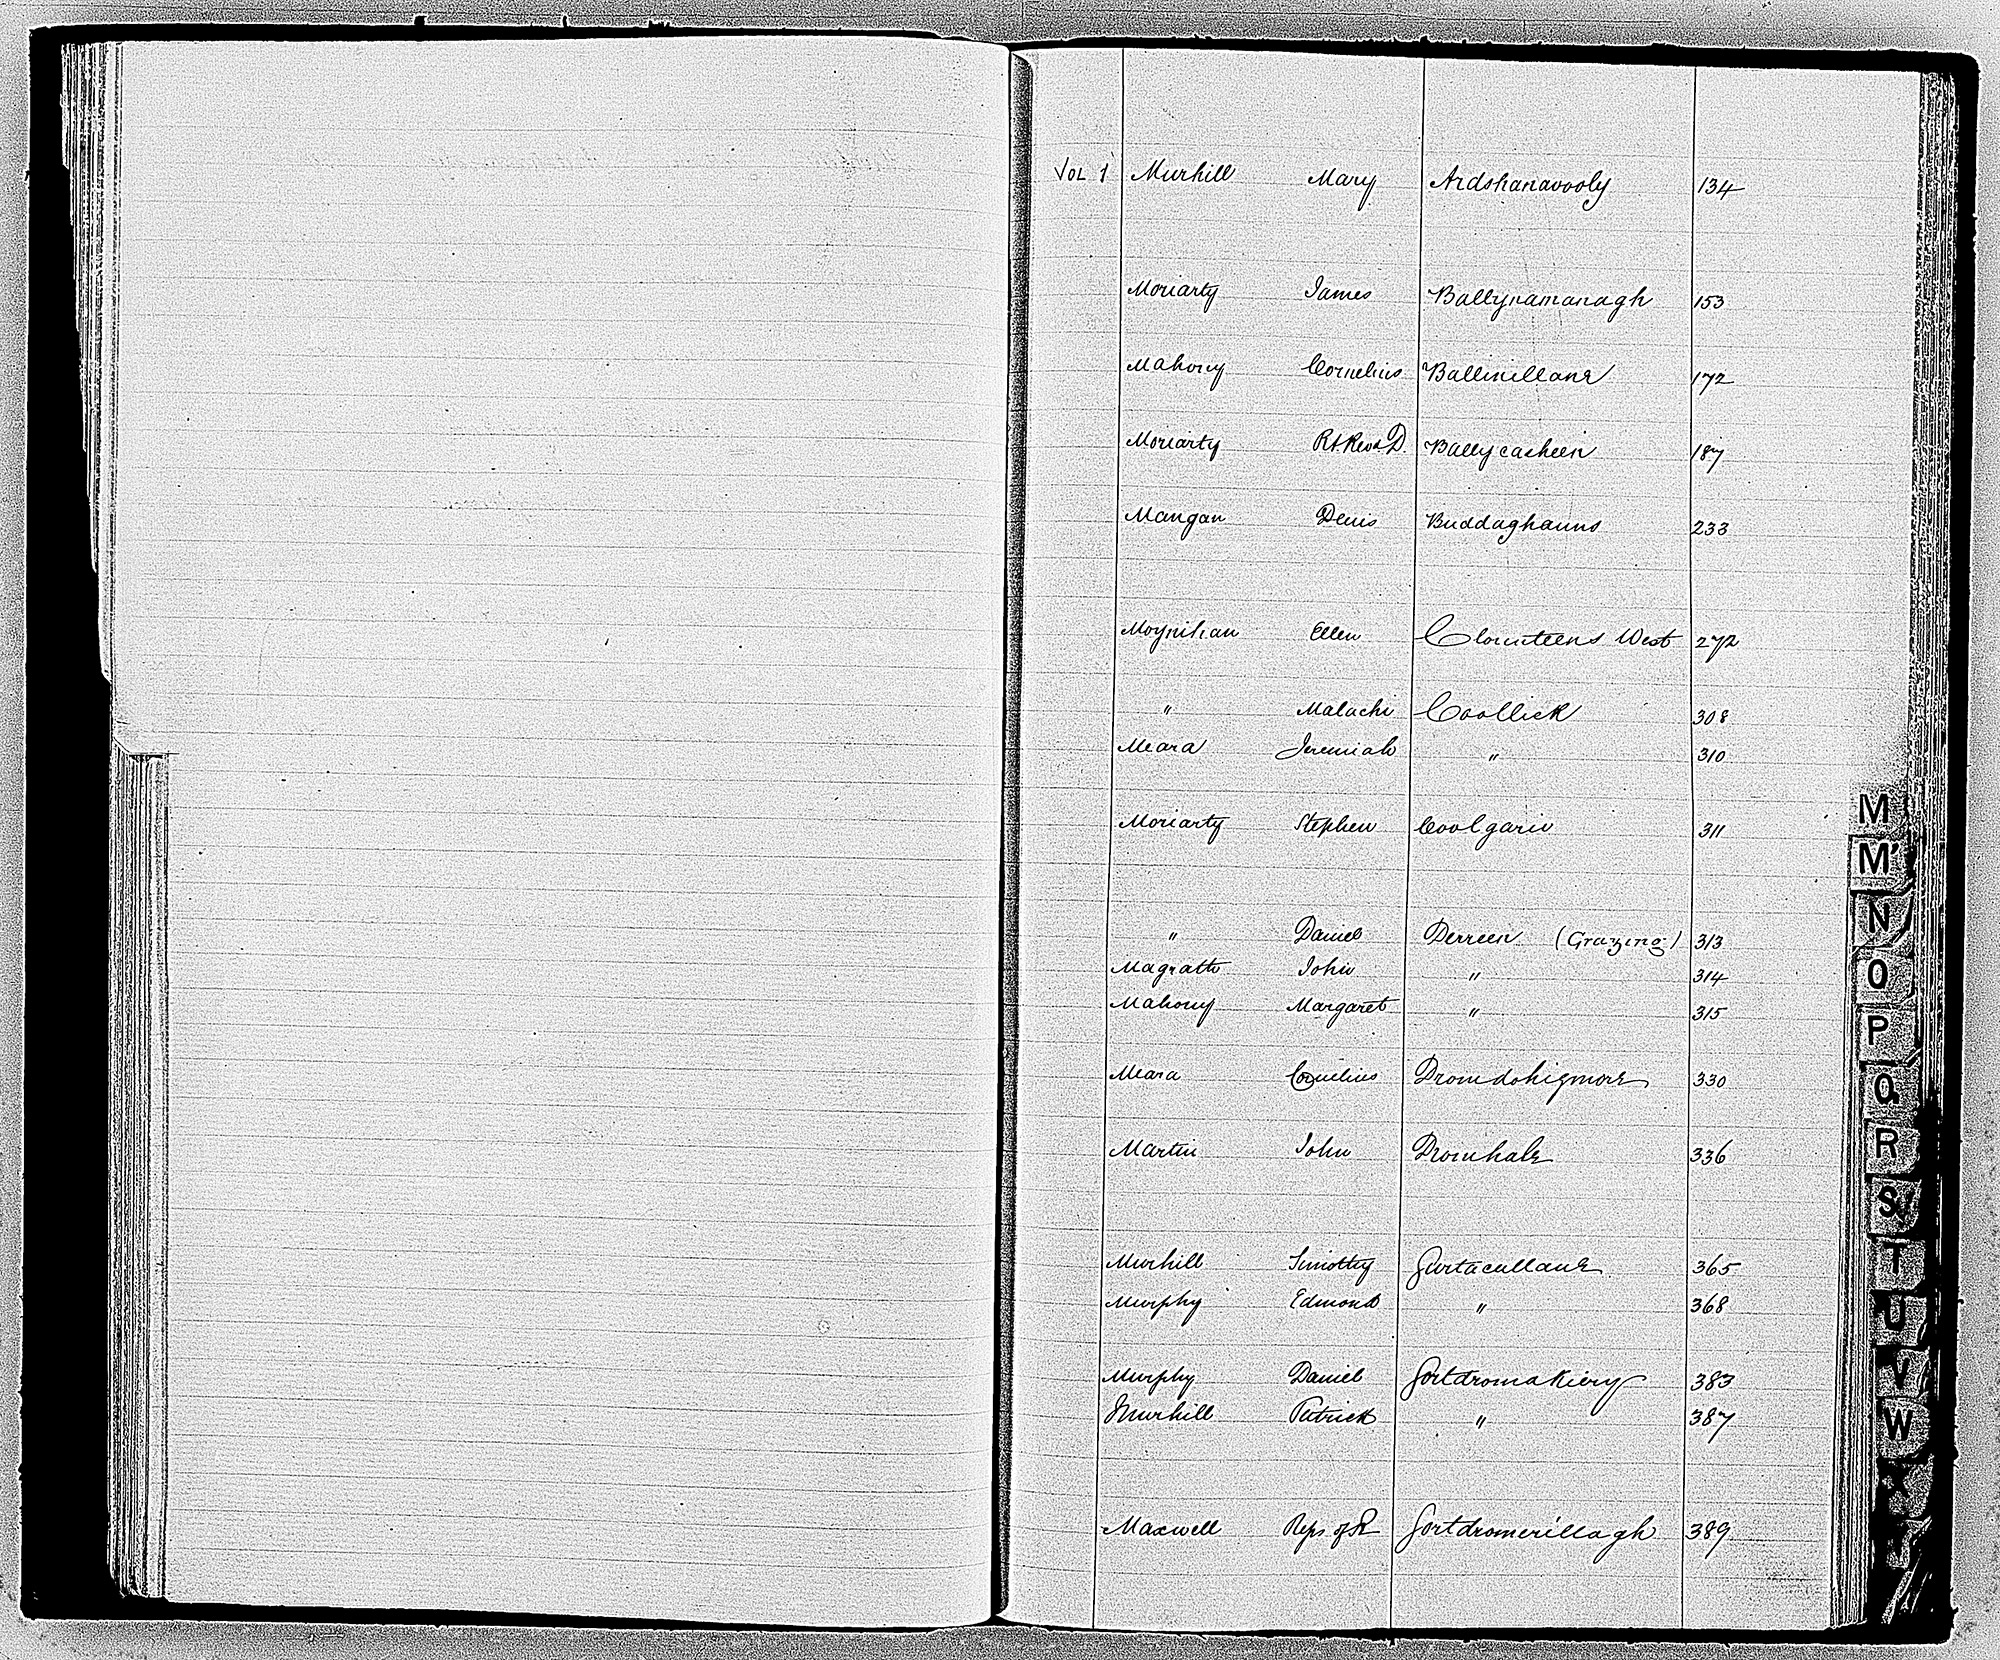 VOL 1 Murhill Mary Ardshanavooly 134
Moriarty James Ballynamanagh 153
Mahony Cornelius Ballinillane 172
Moriarty Rt. Revd D. Ballycasheen 187
Mangan Denis Buddaghauns 233
Moynihan Ellen Clounteens West 272
" Malachi Coollick 308
Meara Jeremiah " 310
Moriarty Stephen Coolgariv 311
" Daniel Derreen (Grazing) 313
Magrath John " 314
Mahony Margaret " 315
Meara Cornelius Dromdohigmore 330
Martin John Dromhale 336
Murhill Timothy Gurtacullane 365
Murphy Edmond " 368
Murphy Daniel Gortdromakiery 383
Murhill Patrick " 387
Maxwell Reps. of R Gortdromerillagh 389
M
M'
N
O
P
Q
R
S
T
U
V
W
X